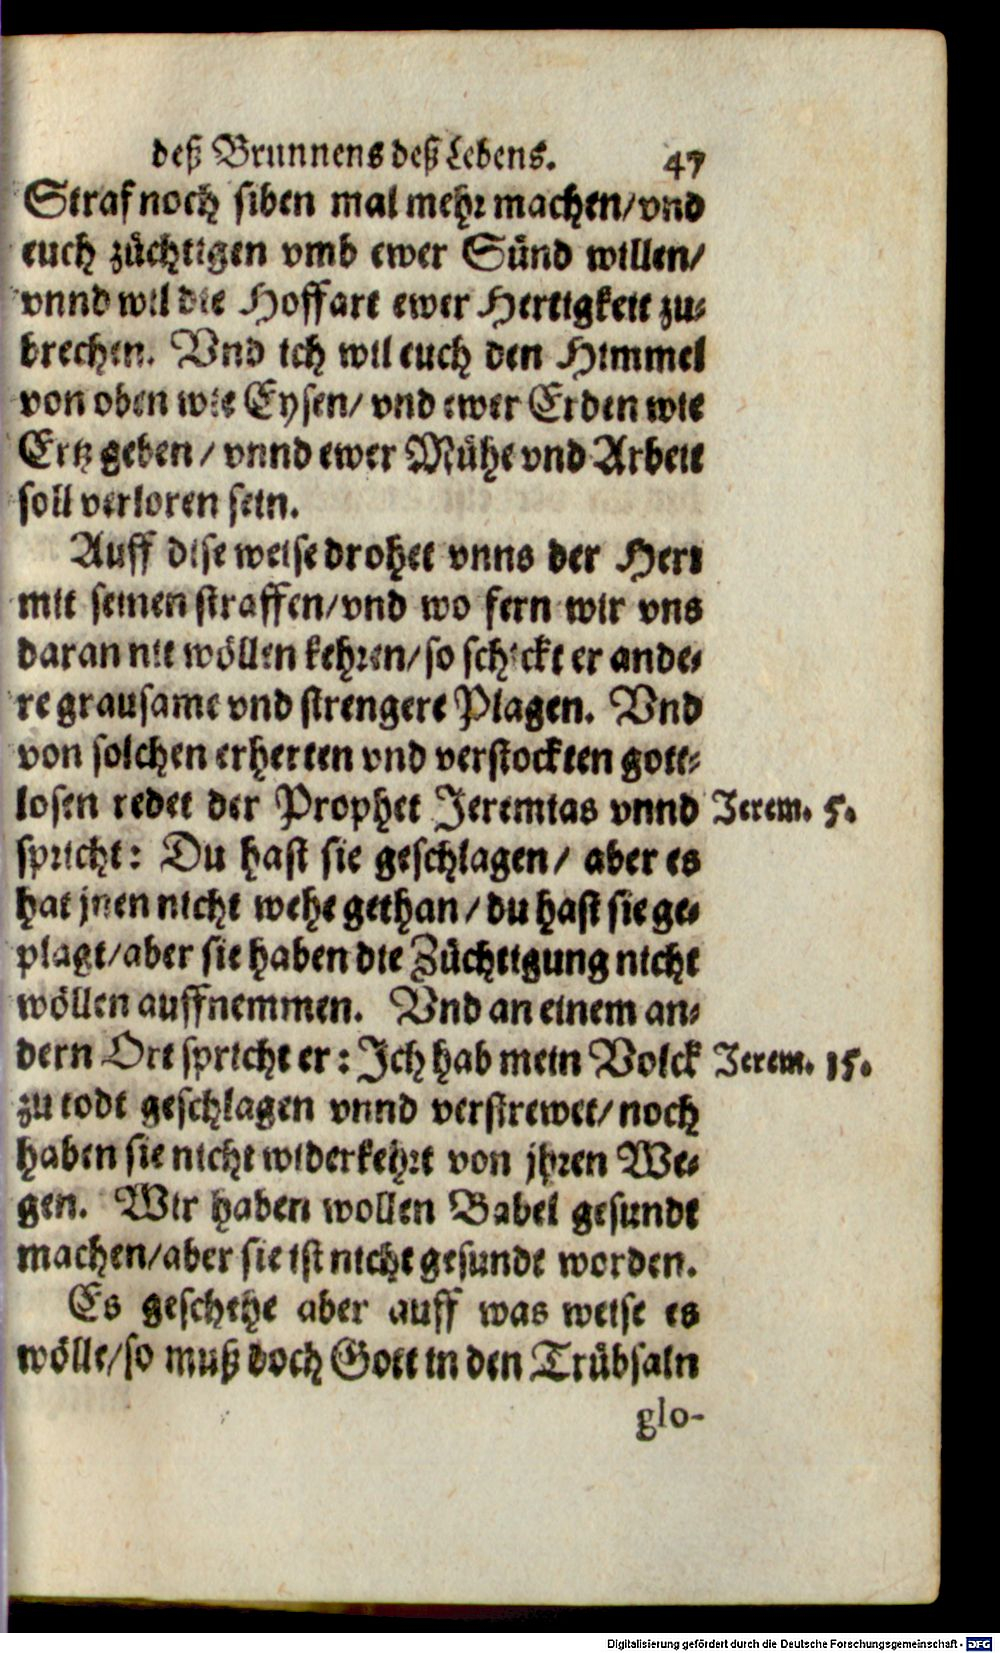 deß Brunnens deß Lebens. 47
Straf noch siben mal mehr machen/vnd
euch züchtigen vmb ewer Sünd willen/
vnnd wil die Hoffart ewer Hertigkeit zu-
brechen. Vnd ich wil euch den Himmel
von oben wie Eysen/ vnd ewer Erden wie
Ertz geben / vnnd ewer Mühe vnd Arbeit
soll verloren sein.
Auff dise weise drohet vnns der Herr
mit seinen straffen/vnd wo fern wir vns
daran nit wöllen kehren/so schickt er ande-
re grausame vnd strengere Plagen. Vnd
von solchen erherten vnd verstockten gott-
losen redet der Prophet Jeremias vnnd Jerem. 5.
spricht: Du hast sie geschlagen/ aber es
hat jnen nicht wehe gethan/du hast sie ge-
plagt/aber sie haben die Züchtigung nicht
wöllen auffnemmen. Vnd an einem an-
dern Ort spricht er: Ich hab mein Volck Jerem. 15.
zu todt geschlagen vnnd verstrewet/noch
haben sie nicht widerkehrt von jhren We-
gen. Wir haben wollen Babel gesundt
machen/aber sie ist nicht gesundt worden.
Es geschehe aber auff was weise es
wölle/so muß doch Gott in den Trübsaln
glo-
Digitalisierung gefördert durch die Deutsche Forschungsgemeinschaft - DFG